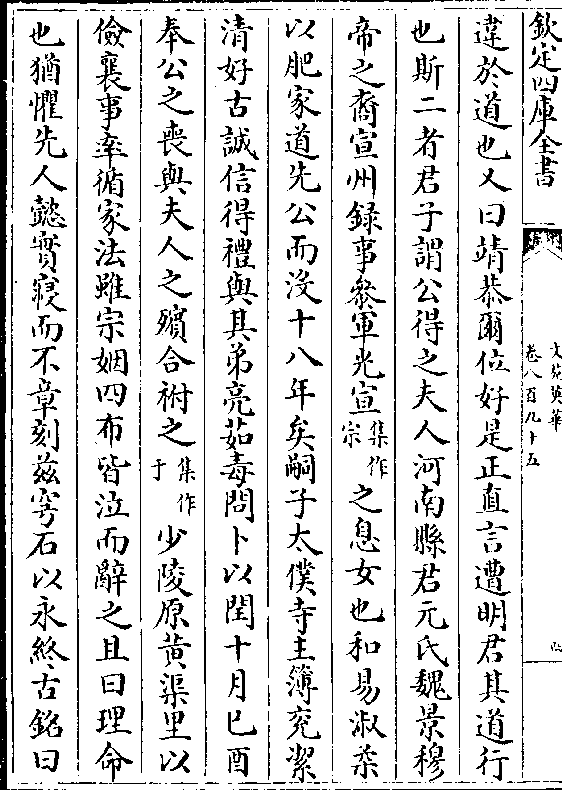 欽定四庫全書
文苑英華
卷八百九十五
違於道也又曰靖恭爾位好是正直言遭明君其道行
也斯二者君子謂公得之夫人河南縣君元氏魏景穆
帝之裔宣州録事叅軍光宣集作宗之息女也和易淑柔
以肥家道先公而沒十八年矣嗣子太僕寺主簿兖潔
清好古誠信得禮與其弟亮茹毒問卜以閏十月己酉
奉公之喪與夫人之殯合祔之集作于少陵原黄渠里以
儉襄事率循家法雖宗姻四布皆泣而辭之且曰理命
也猶懼先人懿實寢而不章刻兹穸石以永終古銘曰